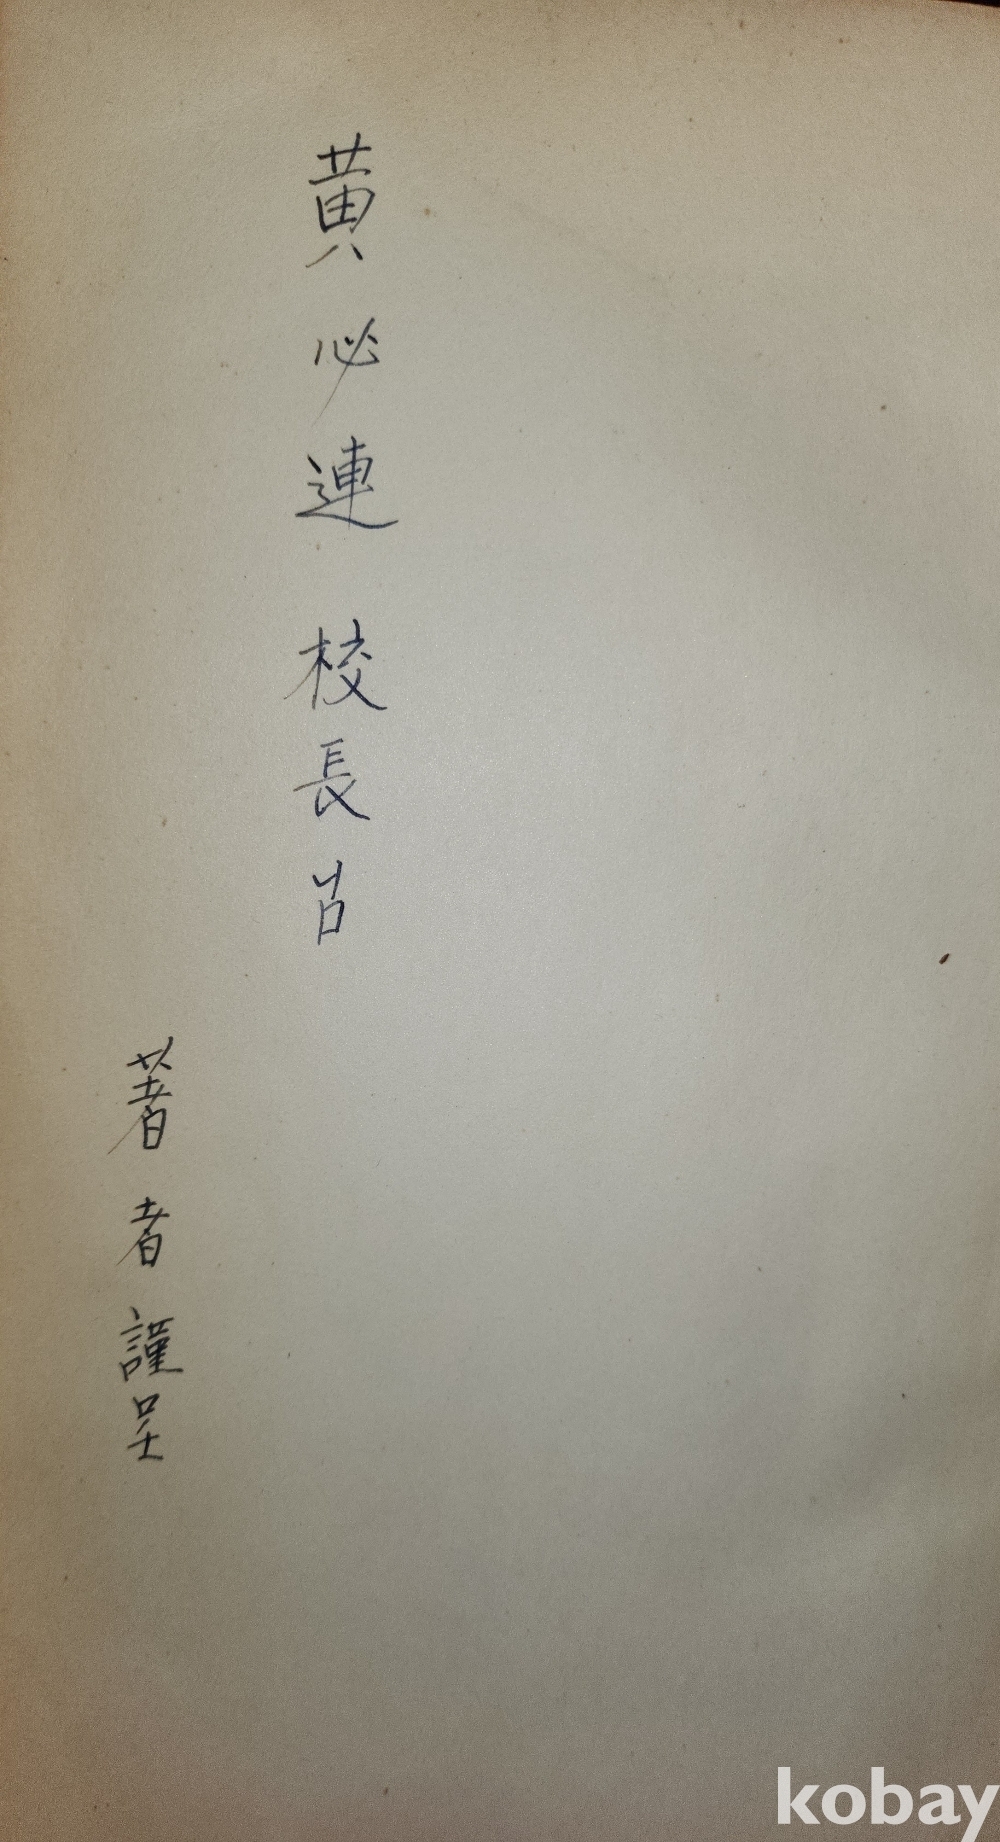 黃必連 校長 㘴
著者 謹呈
kobay